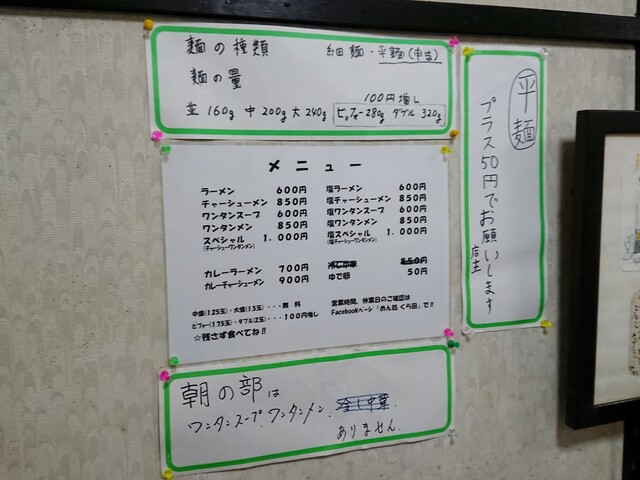 麺の種類 細麺・平麺(申告)
麺の量
並160g 中200g 大240g
100円増し
ビッフォー280g ダブル320g
平麺
プラス50円でお願いします
店主
メニュー
ラーメン 600円
チャーシューメン 850円
ワンタンスープ 600円
ワンタンメン 850円
スペシャル 1.000円
(チャーシューワンタンメン)
カレーラーメン 700円
カレーチャーシューメン 900円
塩ラーメン 600円
塩チャーシューメン 850円
塩ワンタンスープ 600円
塩ワンタンメン 850円
塩スペシャル 1.000円
(塩チャーシューワンタンメン)
冷し中華 850円
ゆで卵 50円
中盛(1.25玉)・大盛(1.5玉)・・・無料
ビフォー(1.75玉)・ダブル(2玉)・・・100円増し
☆残さず食べてね!!
営業時間、休業日のご確認は
Facebookページ「めん処 くら田」で!!
朝の部は
ワンタンスープ、ワンタンメン、冷し中華
ありません。